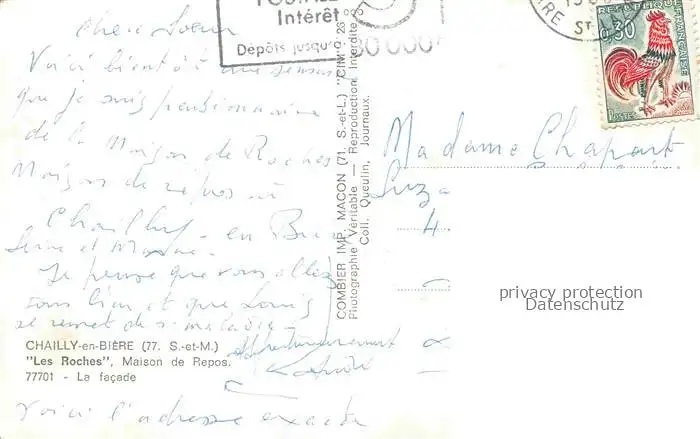 Chère Soeur
Voici bientôt une semaine
que je suis pensionnaire
de la Maison de Roches
Maison de repos à
Chailly-en-Bière
Seine et Marne.
Je pense que vous allez
tous bien et que Louis
se remet de sa maladie
Affectueusement
Voici l'adresse exacte
CHAILLY-en-BIÈRE (77. S.-et-M.)
"Les Roches", Maison de Repos.
77701 - La façade
COMBIER IMP. MACON (71. S.-et-L.) "CIM"
Photographie Véritable — Reproduction Interdite
Coll. Queulin, Journaux.
Intérêt
Dépôts jusqu'
00 000
ST
REPUBLIQUE FRANÇAISE
0,30
POSTES
Madame Chapart
Suza
4
privacy protection
Datenschutz